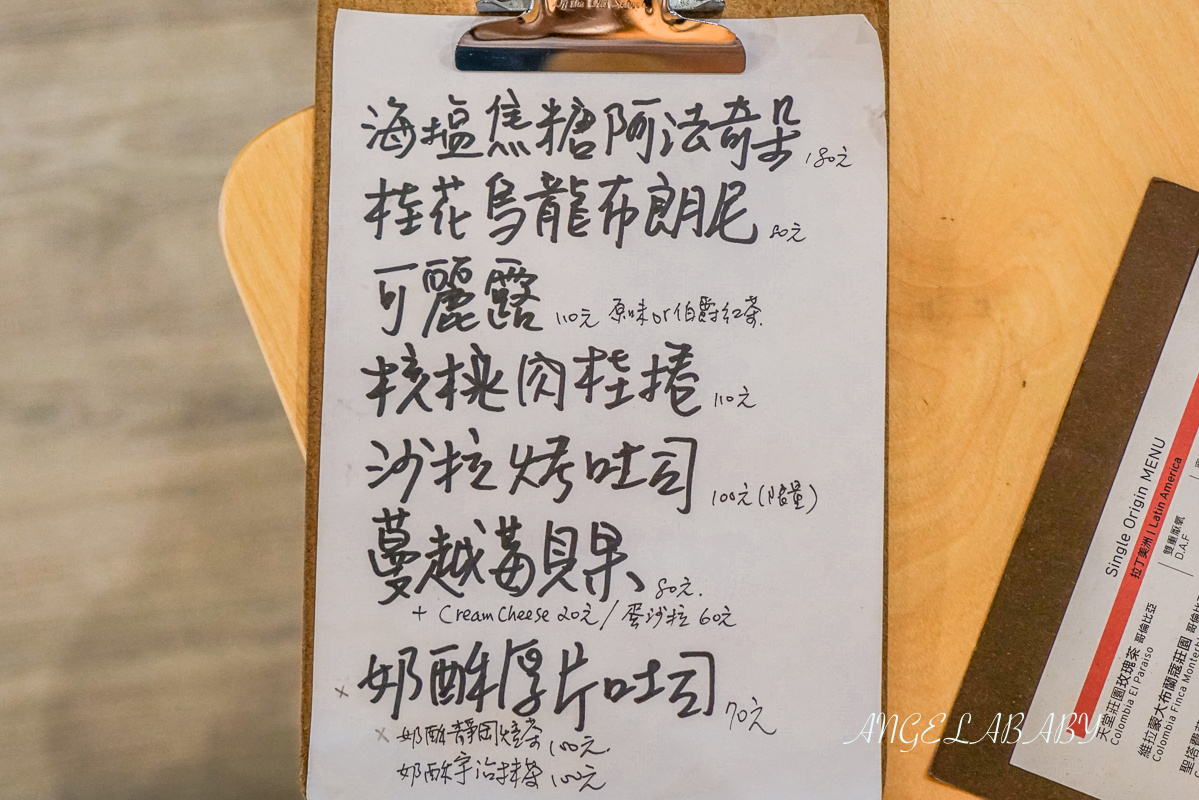 海塩焦糖阿法奇朵 180元
桂花烏龍布朗尼 80元
可麗露 110元 原味or伯爵紅茶
核桃肉桂捲 110元
沙拉烤吐司 100元(限量)
蔓越莓貝果 80元.
+ Cream Cheese 20元/蛋沙拉 60元
x 奶酥厚片吐司 70元
x 奶酥靜岡焙茶 100元.
奶酥宇治抹茶 100元
ANGELABABY
Single Origin MENU
拉丁美洲 | Latin America
雙重厭氧
D.A.F
天堂莊園玫瑰茶 哥倫比亞
Colombia El Paraiso
維拉蒙大布蘭蔻莊園 哥倫比
Colombia Finca Monterb